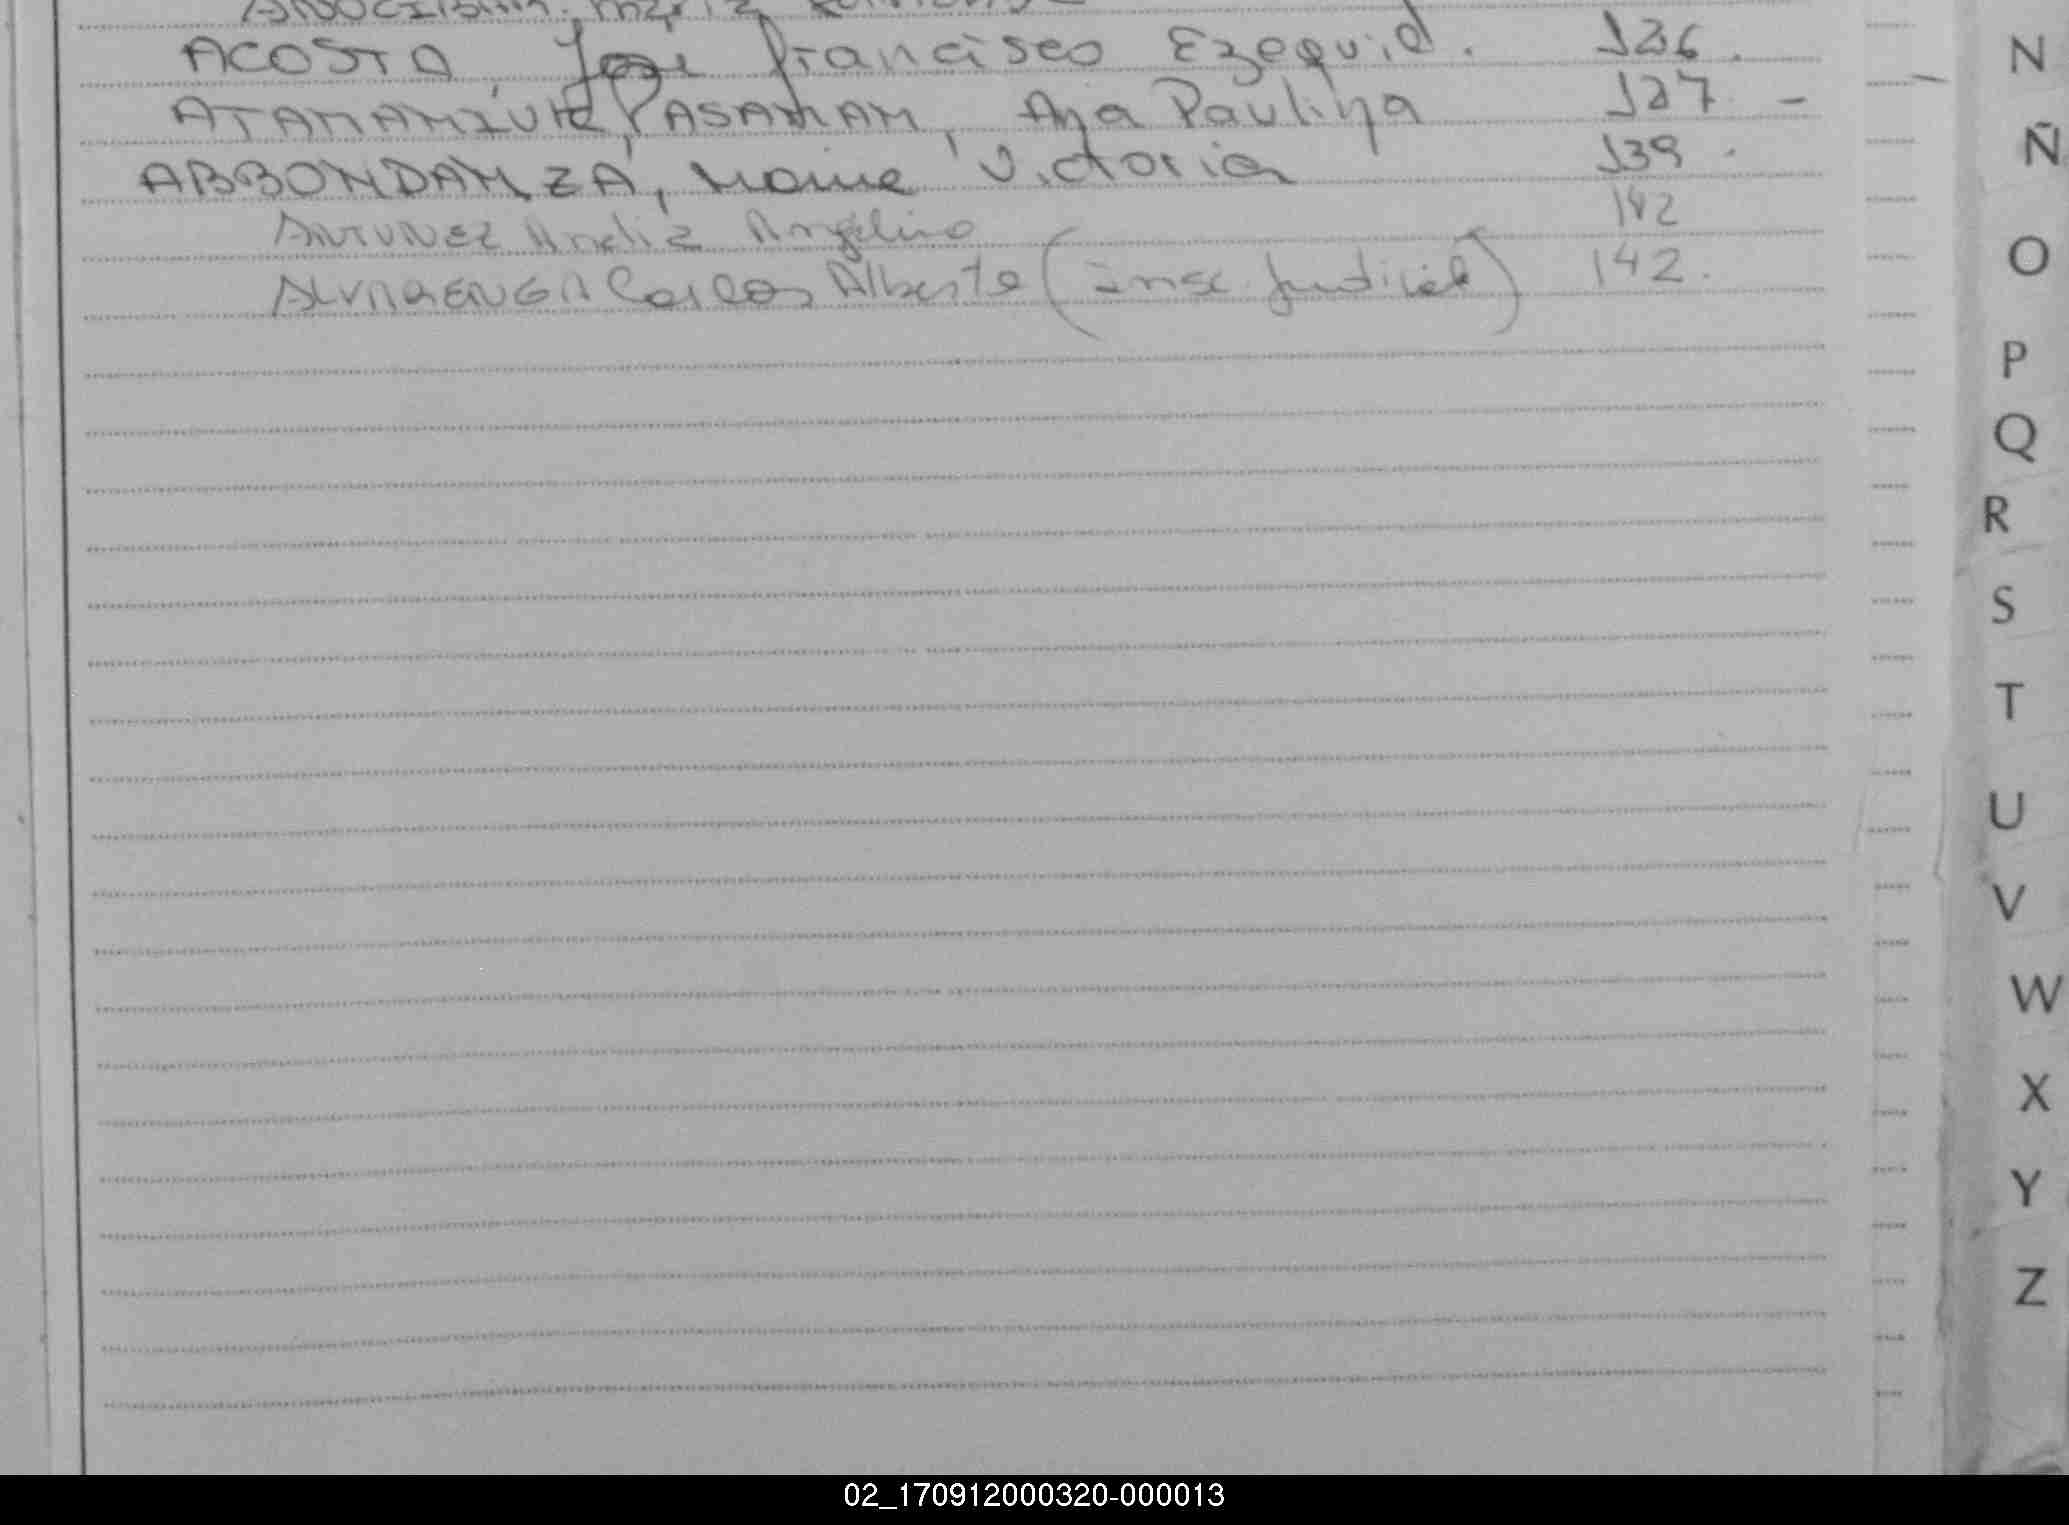 ACOSTA, José francisco Ezequiel. 136.
PASAMAN, Ana Paulina 137 -
ABBONDANZA, Victoria 139.
ANTUNEZ Analia Angelina 142
Carlos Alberto (insc. Judicial) 142.
N
Ñ
O
P
Q
R
S
T
U
V
W
X
Y
Z
02_170912000320-000013